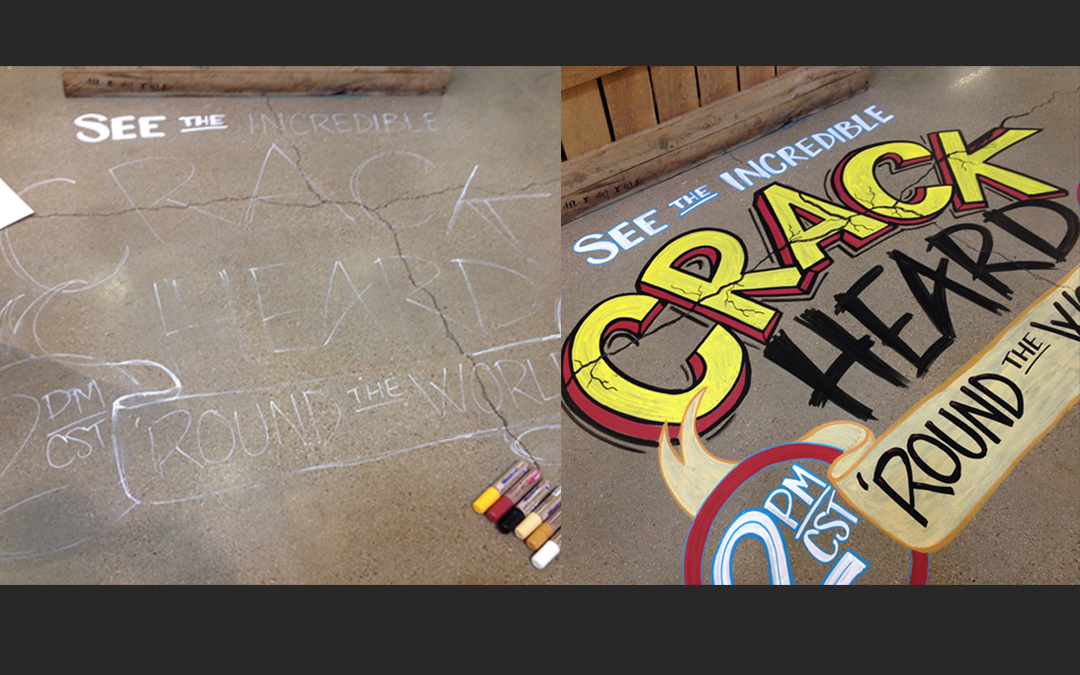 SEE THE INCREDIBLE
CRACK
HEARD
'ROUND THE WORL
2PM
CST
SEE THE INCREDIBLE
CRACK
HEARD
'ROUND THE W
2PM
CST